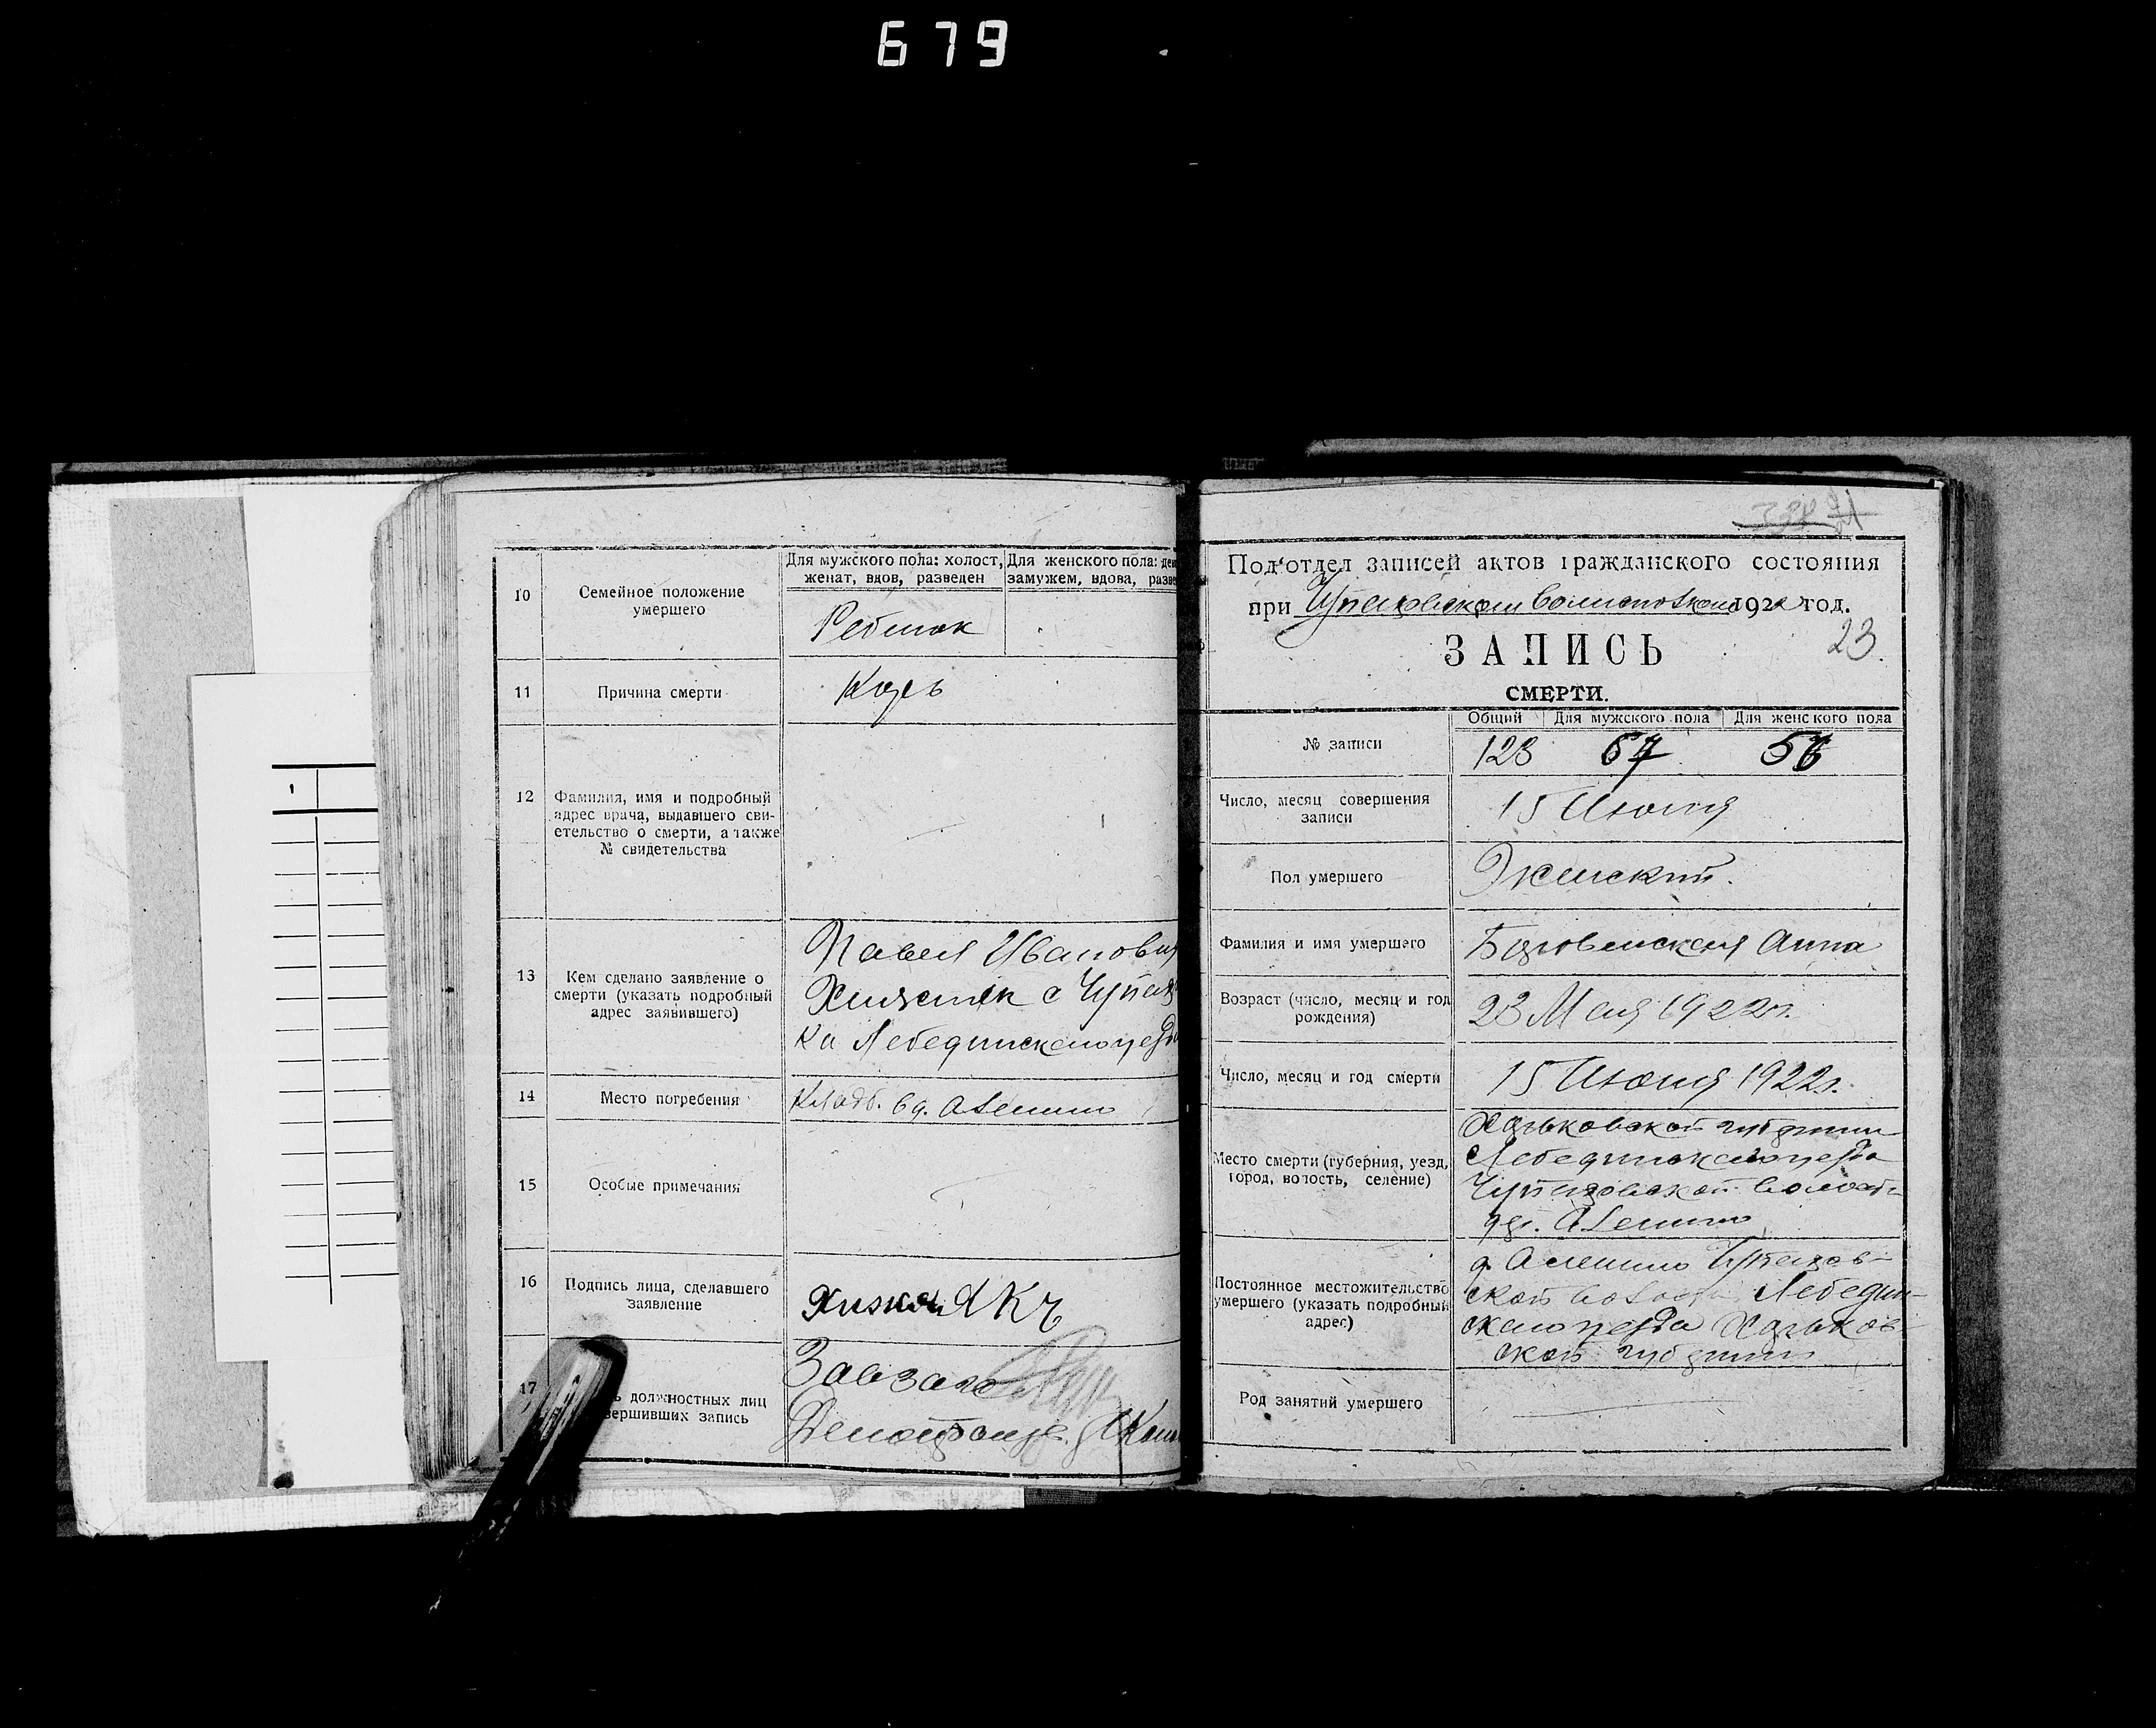 679
10
Семейное положение
умершего
Для мужского пола: холост,
женат, вдов, разведен
Для женского пола:
замужем, вдова,
Ребенок
11
Причина смерти
Корь
12
Фамилия, имя и подробный
адрес врача, выдавшего сви-
етельство о смерти, а также
№ свидетельства
13
Кем сделано заявление о
смерти (указать подробный
адрес заявившего)
Павел Иванович
с
Лебединского уезда
14
Место погребения
Кладб. в д. Алешино
15
Особые примечания
16
Подпись лица, сделавшего
заявление
17
должностных лиц
вершивших запись
Завзаго
1
Под'отдел записей актов гражданского состояния
при 1922 год.
23
ЗАПИСЬ
СМЕРТИ.
№ записи
Общий
Для мужского пола
Для женского пола
123 67 56
Число, месяц совершения
записи
15 Июня
Пол умершего
Женский.
Фамилия и имя умершего
Анна
Возраст (число, месяц и год
рождения)
23 Мая 1922 г.
Число, месяц и год смерти
15 Июня 1922 г.
Место смерти (губерния, уезд,
город, волость, селение)
Харьковской губернии
Лебединского уезда
Чупаховской волости
Алешино
Постоянное местожительство
умершего (указать подробный
адрес)
д. Алешино Чупахов-
ской волости Лебедин-
ского уезда Харьков-
ской губернии
Род занятий умершего